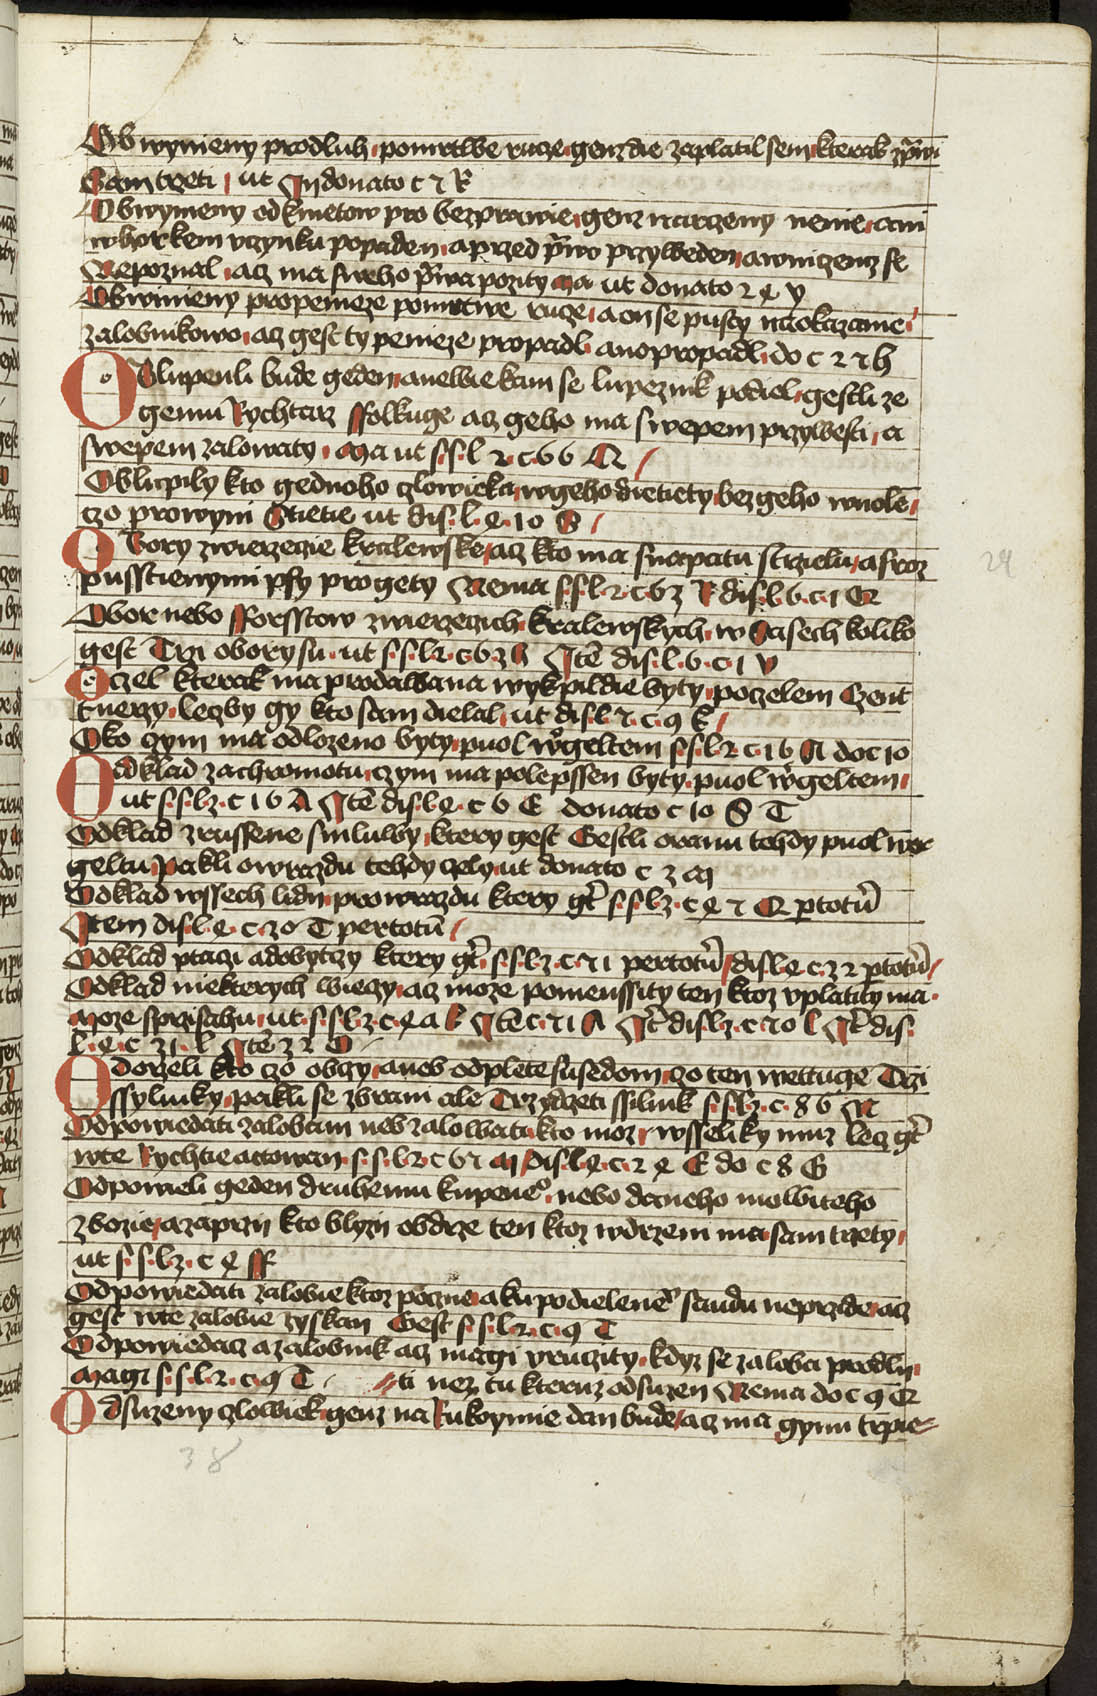 Obwymeny prodluh pomrtwe rucze genzdie zaplatil sem kterak zprawi
Samtrzeti ut Jndonato c 7 R
Obwymeny od kmetow pro bezprawie genz narzeny nenie ani
whorkem uczynku popaden aprzed prawo przyweden awniczemz se
Nepoznal acz ma sweho prawa pozity Ma ut donato 2 e y
Obwinieny propenieze pomrtwe rucze aon se pusty naokazanie
zalobnikowo acz gest ty penieze propadl anopropadl do c 2 7 h
Oblupenli bude geden anewie kam se lupeznik podiel gestli ze
gemu Rychtarz ffolkuge acz geho ma swepem przywesti a
swepem zalowaty Ma ut s s l 2 c 66 Q
Oblupily kto gednoho czlowieka wgeho dietiety bez geho wuole
czo prowym Stietie ut dis l e 10 S
Obory zwierzecie kralewske acz kto ma snapatu strzielu afroz
pusstienymi psy pro gety Nema s s l 2 c 63 R dis l 6 c 1 Q
Obor nebo fforsstow zwierzecich kralewskych w Sasech koliko
gest Trzi obory su ut s s l 2 c 63 h Jtem dis l 6 c 1 v
Oczel kterak ma prodawana wykpildie byty poczelem Czent
tnerzy leczby gy kto sam dielal ut dis l 7 c 9 k
Oko czym ma odlozeno byty puol wergeltem s s l 2 c 16 A do c 10
Odklad zachromotu czym ma polepssen byty puol wergeltem
ut s s l 3 c 16 A Jtem dis l e c 6 E donato c 10 S T
Odklad zrussene smluwy ktery gest Gestli oranu tehdy puol wer
geltu Pakli owrazdu tehdy czely ut donato c 3 m
Odklad wssech lidij prowrazdu ktery gest s s l 3 c e 7 Q pertotum
Jtem dis l e c 20 T pertotum
Odklad ptaczi adobytczy ktery gest s s l 3 c 71 pertotum dis l e c 32 pertotum
Odklad niekterych wieczy acz moze pomenssity ten ktoz uplatity ma
Moze sprzisahu ut s s l 3 c e a k Jtem c 71 A Jtem dis l 3 c 70 l Jtem dis
l e c 31 l Jtem 32 O
Odorzeli kto czo obczy aneb odplete susedom czo ten wettuge Trzi
ssylinky pakli se zbrani ale Trzydczeti ssilink s s l 3 c 86 N
Odpowiedati zalobam neb zalowati kto moz wsseliky muz lecz gest
wte Rychtie actowan s s l 2 c 67 m dis l e c 2 e E do c 8 G
Odpowieli geden druhemu kupeneho nebo daneho mowiteho
zbozie azaprzij kto blyzij obdrze ten ktoz wdrzem ma sam trzety
ut s s l 3 c e ff
Odpowiedati zalobie ktoz pocne aku podieleneho saudu neprzide acz
gest wte zalobie zyskan Gest s s l 2 c 9 T
Odpowiedacz azalobnik acz magi uruczity kdyz se zaloba prodlij
Magi s s l 2 c 9 T ti nez tu kteruz odsuzen Nema do c 9 Q
Odsuzeny czlowiek genz na Rukoymie dan bude acz ma gynu trpie
29
38